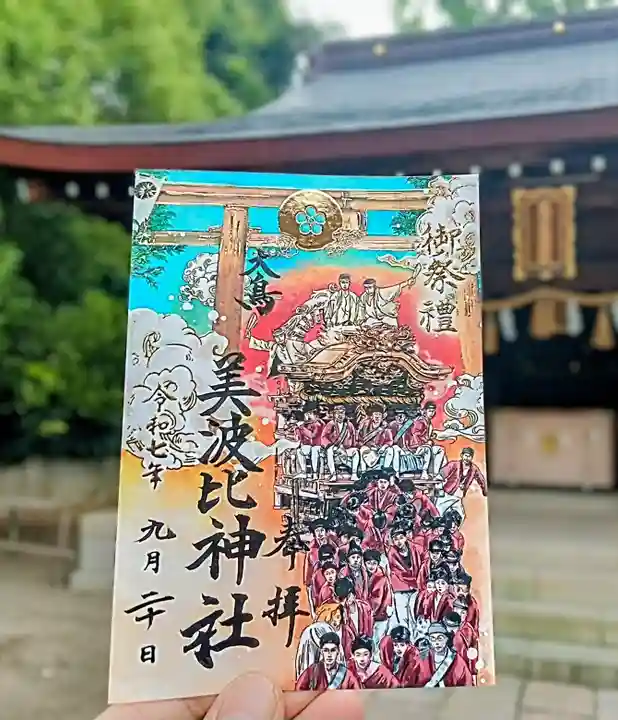 御祭禮
奉拝
大鳥
美波比神社
令和七年
九月二十日